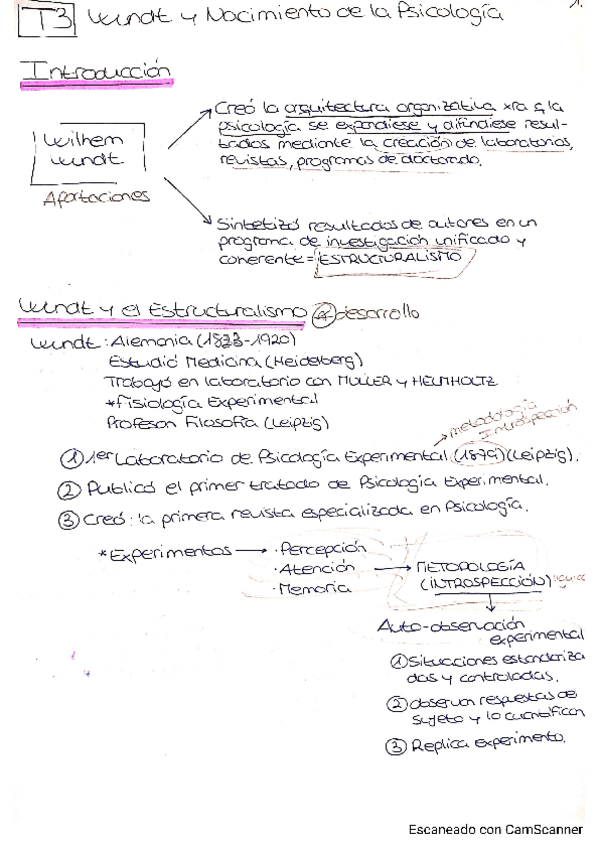 1.
T3 Wundt y Nacimiento de la Psicología
Introducción
Wilhem
Wundt
Aportaciones
Creó la arquitectura organizativa xra q la
psicología se expandiese y difundiese resul-
tados mediante la creación de laboratorios,
revistas, programas de doctorado.
Sintetizó resultados de autores en un
programa de investigación unificado y
coherente = ESTRUCTURALISMO
Wundt y el Estructuralismo desarrollo
Wundt: Alemania (1833-1920)
Estudió Medicina (Heidelberg)
Trabajó en laboratorio con MULLER y HELMHOLTZ
*Fisiología Experimental
Profesor Filosofía (Leipzig)
metodología
Introspección
① 1er Laboratorio de Psicología Experimental (1879) (Leipzig).
② Publicó el primer tratado de Psicología Experimental.
③ Creó: la primera revista especializada en Psicología.
*Experimentos → · Percepción
· Atención → METODOLOGÍA
· Memoria (INTROSPECCIÓN)
Auto-observación
experimental
① Situaciones estandariza
das y controladas.
② observan respuestas de
sujeto y lo cuantifican
③ Replica experimento.
Escaneado con CamScanner